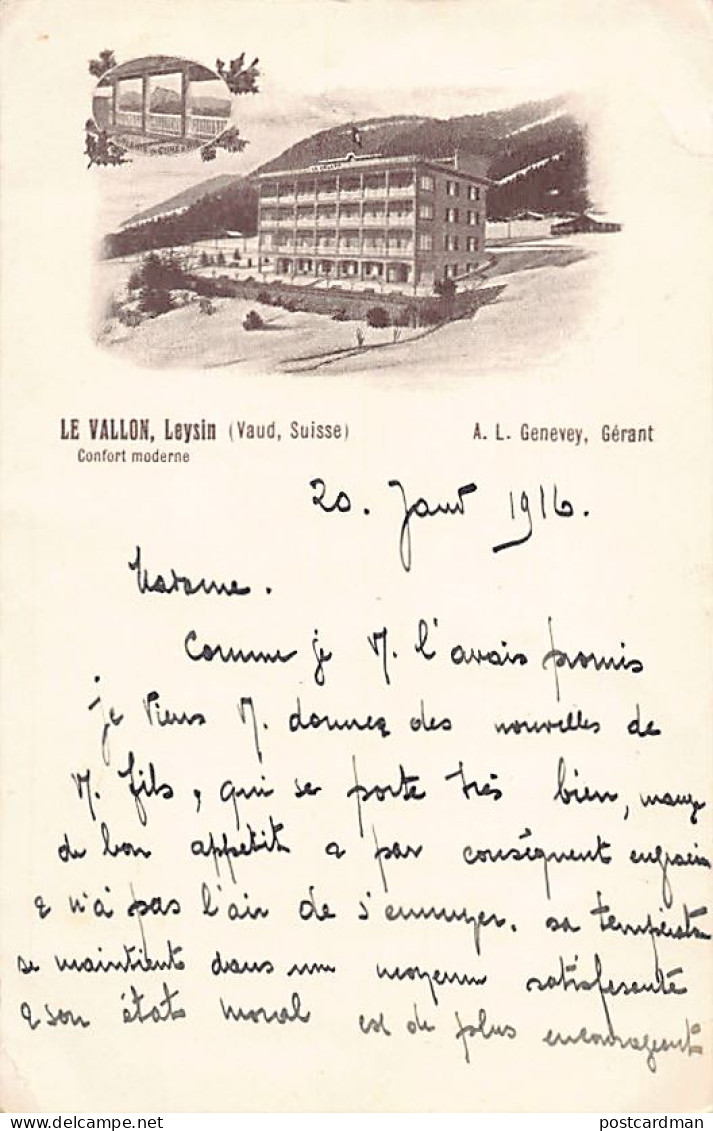 LE VALLON
LE VALLON, Leysin (Vaud, Suisse)
A. L. Genevey, Gérant
Confort moderne
20. Janv 1916.
Madame.
Comme je V. l'avais promis
je viens V. donner des nouvelles de
V. fils, qui se porte très bien, mange
de bon appétit & par conséquent
& n'a pas l'air de s'ennuyer. sa
se maintient dans une moyenne
& son état moral est de plus encourageant
postcardman